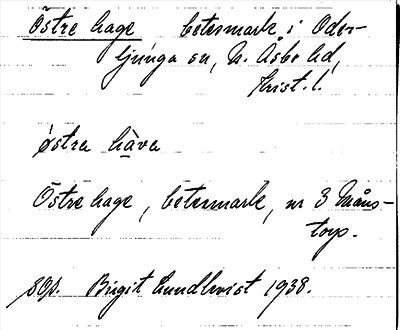 Östre hage betesmark i Oder-
ljunga sn, N. Åsbo hd,
Krist. l.
östra hàva
Östre hage, betesmark, nr 3 Måns-
torp.
sop. Birgit Lundkvist 1938.